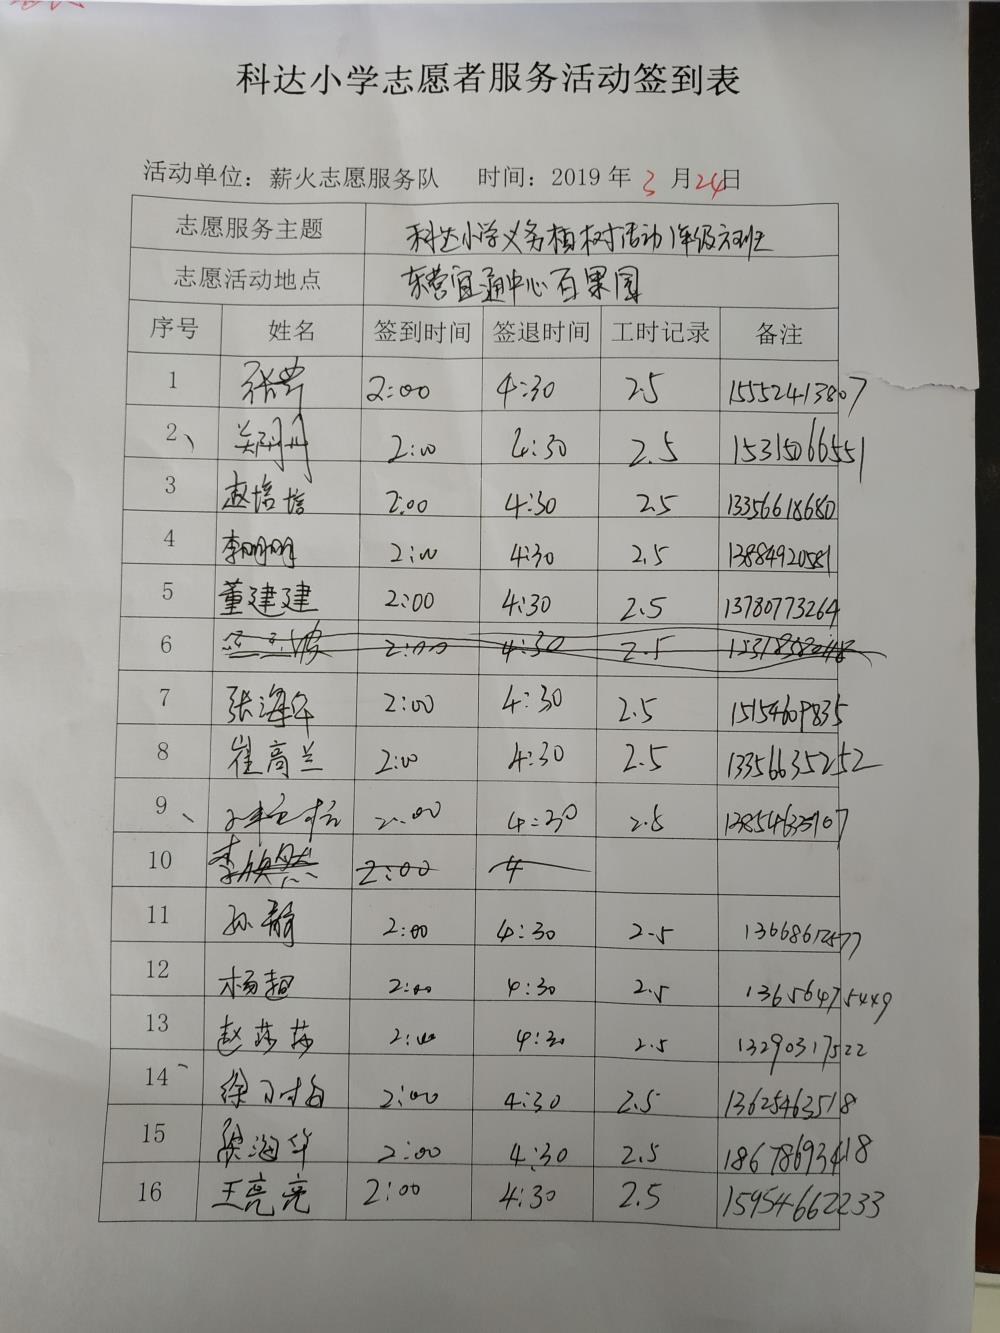 科达小学志愿者服务活动签到表
活动单位：薪火志愿服务队 时间：2019年3月24日
志愿服务主题 科达小学义务植树活动1年级六班
志愿活动地点 东营宜通中心百果园
序号 姓名 签到时间 签退时间 工时记录 备注
1 2:00 4:30 2.5 15552413807
2、 郑丹丹 2:00 4:30 2.5 15315066551
3 赵培培 2:00 4:30 2.5 13356618680
4 李明明 2:00 4:30 2.5 13884920581
5 董建建 2:00 4:30 2.5 13780773264
6 2:00 4:30 2.5
7 张海华 2:00 4:30 2.5 15154609835
8 崔高兰 2:00 4:30 2.5 13356635252
9、 2:00 4:30 2.5
10 李欣然 2:00 4
11 孙静 2:00 4:30 2.5
12 杨超 2:00 4:30 2.5 13656475449
13 赵莎莎 2:00 4:30 2.5 13290317522
14 2:00 4:30 2.5 13625463518
15 张海华 2:00 4:30 2.5 18678693418
16 王亮亮 2:00 4:30 2.5 15954662233